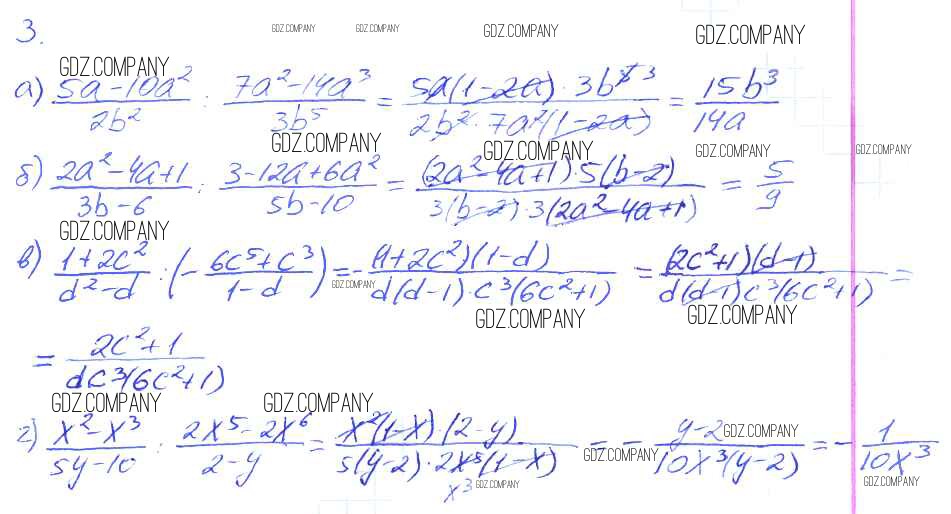 3.
GDZ.COMPANY GDZ.COMPANY GDZ.COMPANY GDZ.COMPANY
GDZ.COMPANY
а) (5a-10a²)/(2b²) : (7a²-14a³)/(3b⁵) = (5a(1-2a)·3b⁵ ³)/(2b²·7a²(1-2a)) = 15b³/14a
GDZ.COMPANY GDZ.COMPANY GDZ.COMPANY GDZ.COMPANY
б) (2a²-4a+1)/(3b-6) : (3-12a+6a²)/(5b-10) = ((2a²-4a+1)·5(b-2))/(3(b-2)·3(2a²-4a+1)) = 5/9
GDZ.COMPANY
в) (1+2c²)/(d²-d) : (-(6c⁵+c³)/(1-d)) = -((1+2c²)(1-d))/(d(d-1)·c³(6c²+1)) = ((2c²+1)(d-1))/(d(d-1)c³(6c²+1)) =
GDZ.COMPANY GDZ.COMPANY GDZ.COMPANY
= (2c²+1)/(dc³(6c²+1))
GDZ.COMPANY GDZ.COMPANY
г) (x²-x³)/(5y-10) : (2x⁵-2x⁶)/(2-y) = (x²(1-x)·(2-y))/(5(y-2)·2x⁵(1-x)) = -(y-2)/(10x³(y-2)) = -1/(10x³)
x³
GDZ.COMPANY GDZ.COMPANY GDZ.COMPANY GDZ.COMPANY